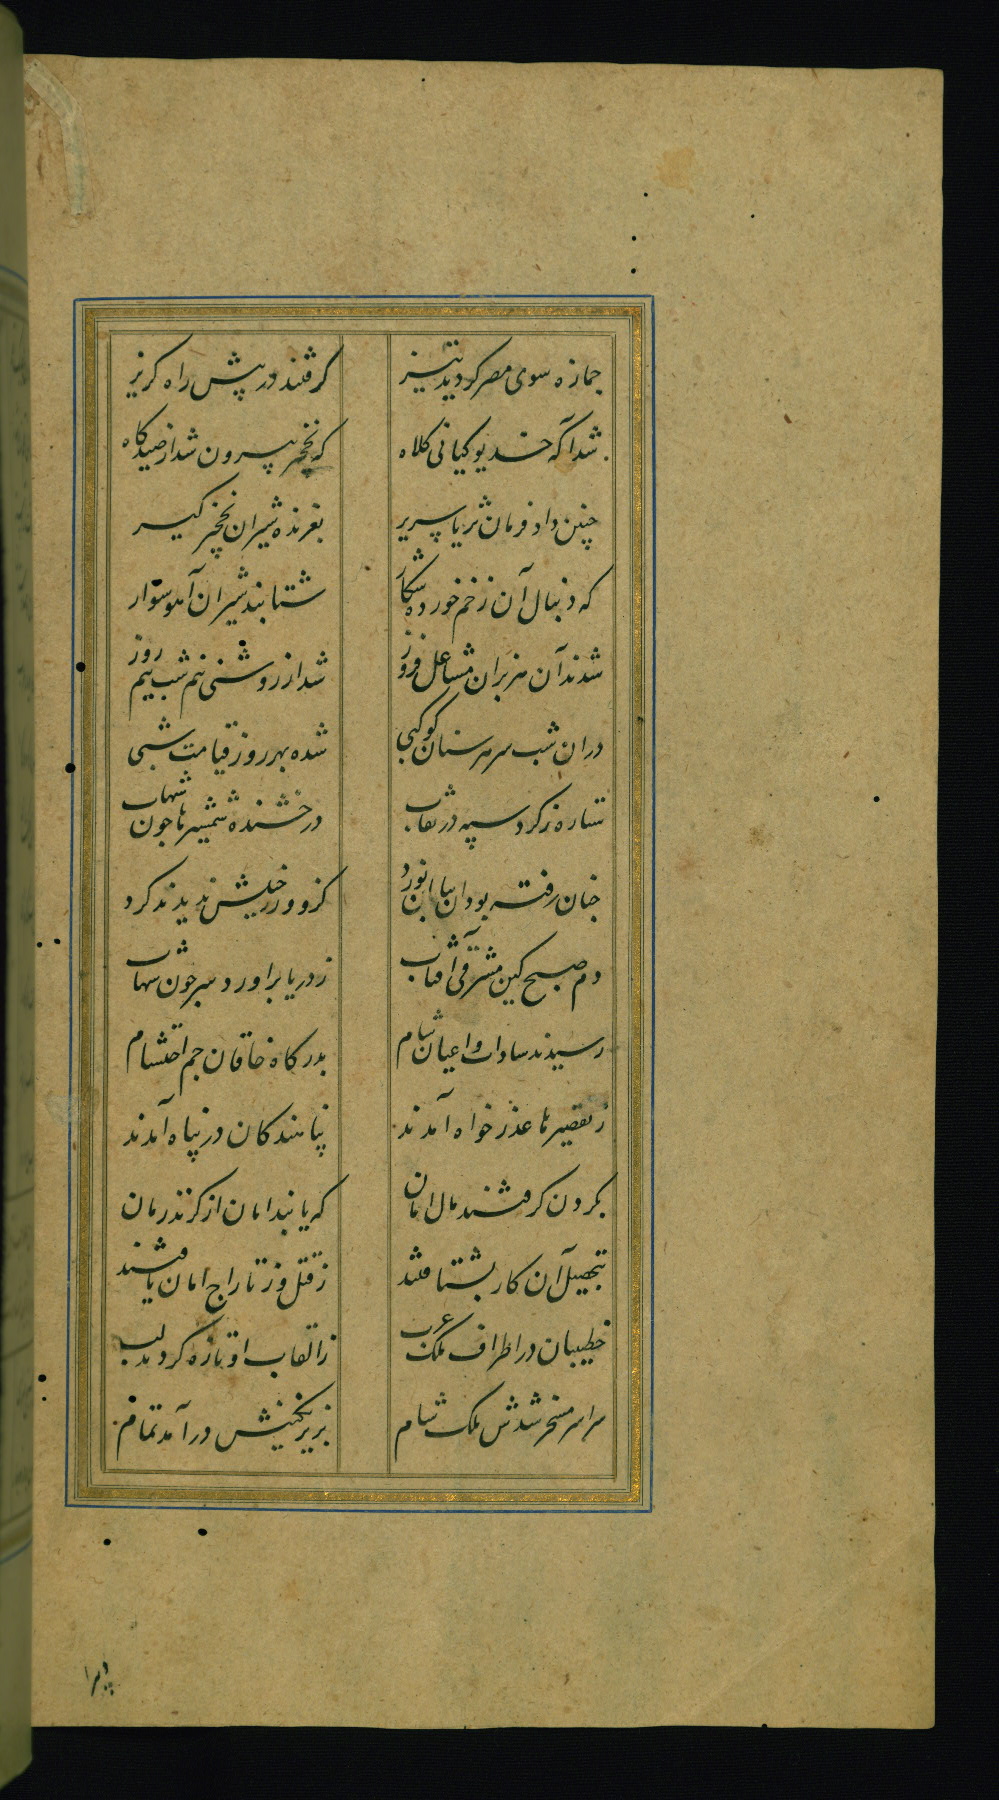 جمازه سوی مصر کردید تیز
کرفتند در پیش راه کریز
شد اگه خدیو کیانی کلاه
که نخچیر بیرون شد از صیدکاه
چنین داد فرمان ثریا سریر
بغرنده شیران نخچیر کیر
که دنبال آن زخم خورده شکار
شتابند شیران آهو سوار
شدند آن هزبران مشاعل فروز
شد از روشنی نیم شب نیم روز
دران شب سر هر سنان کوکبی
شده بهر روز قیامت شبی
ستاره ز کرد سپه در نقاب
درخشنده شمشیرها چون شهاب
چنان رفته بود ان بیابان نورد
کزو ورز خیلش ندیدند کرد
دم صبح کین مشرقی آفتاب
ز دریا براورد سر چون
رسیدند سادات و اعیان شام
بدرکاه خاقان جم احتشام
ز تقصیرها عذر خواه آمدند
پناهندکان در پناه آمدند
بکردن کرفتند مال امان
که یابند امان از کزند زمان
بتحصیل آن کار بشتافتند
ز قتل و ز تاراج امان یافتند
خطیبان در اطراف ملک عرب
ز القاب او تازه کردند لب
سراسر مسخر شدش ملک شام
بزیر نکینش در آمد تمام